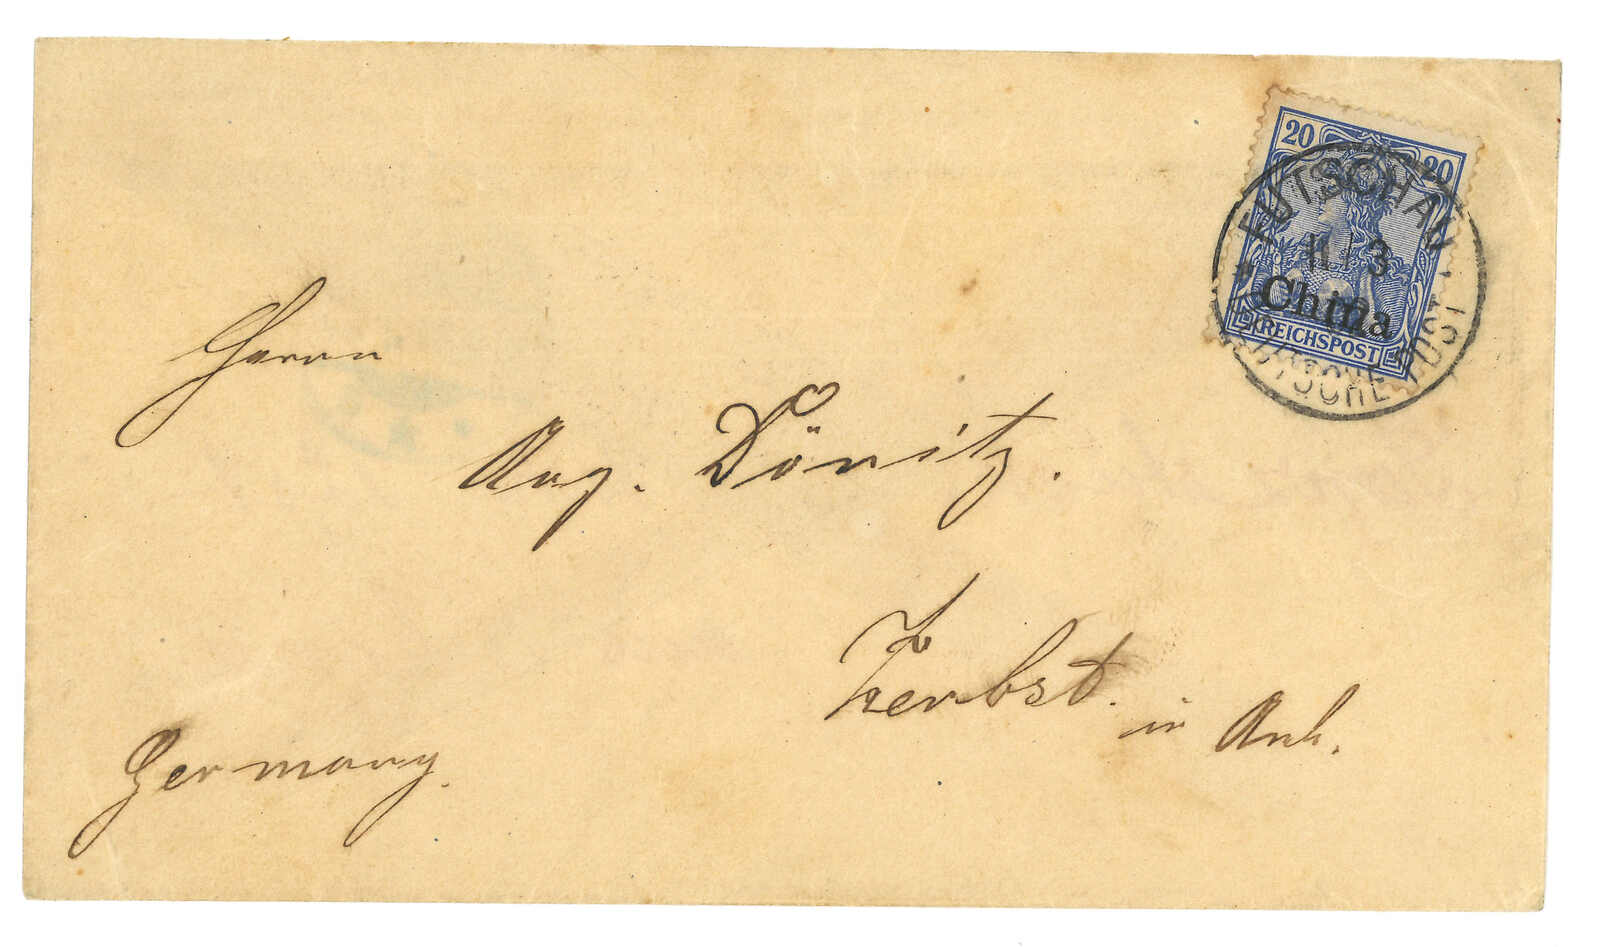 20 20
FUTSCHAU
11/3
China
REICHSPOST
DEUTSCHE POST
Herrn
Aug. Dönitz.
Zerbst.
in Anh.
Germany.